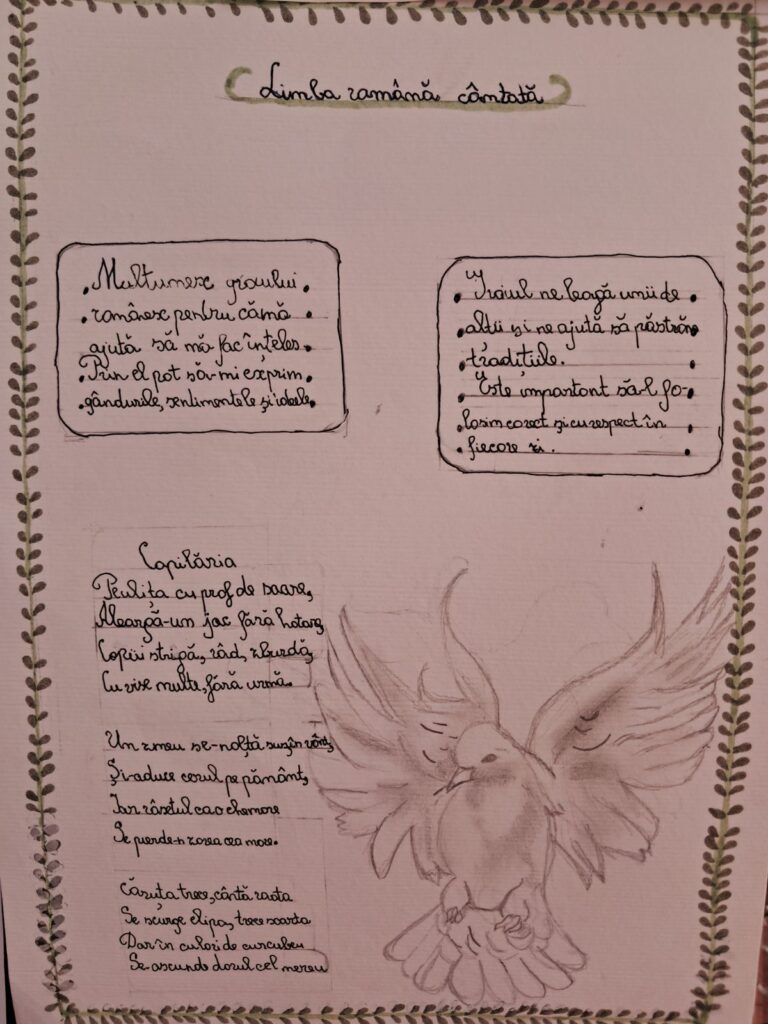 Limba română cântată
Mulțumesc graiului
românesc pentru cămă
ajută să mă fac înțeles.
Prin el pot să-mi exprim
gândurile, sentimentele și ideele.
Graiul ne leagă unii de
alții și ne ajută să păstrăm
tradițiile.
Este important să-l fo-
losim corect și cu respect în
fiecare zi.
Copilăria
Peulița cu praf de soare,
Aleargă-un joc fără hotare,
Copiii strigă, râd, zburdă,
Cu vise multe, fără urmă.
Un zmeu se-nalță sus în vânt,
Și-aduce cerul pe pământ,
Iar râsetul ca o chemare
Se pierde-n zarea cea mare.
Căruța trece, cântă roata
Se scurge clipa, trece soarta
Dar în culori de curcubeu
Se ascunde dorul cel mereu